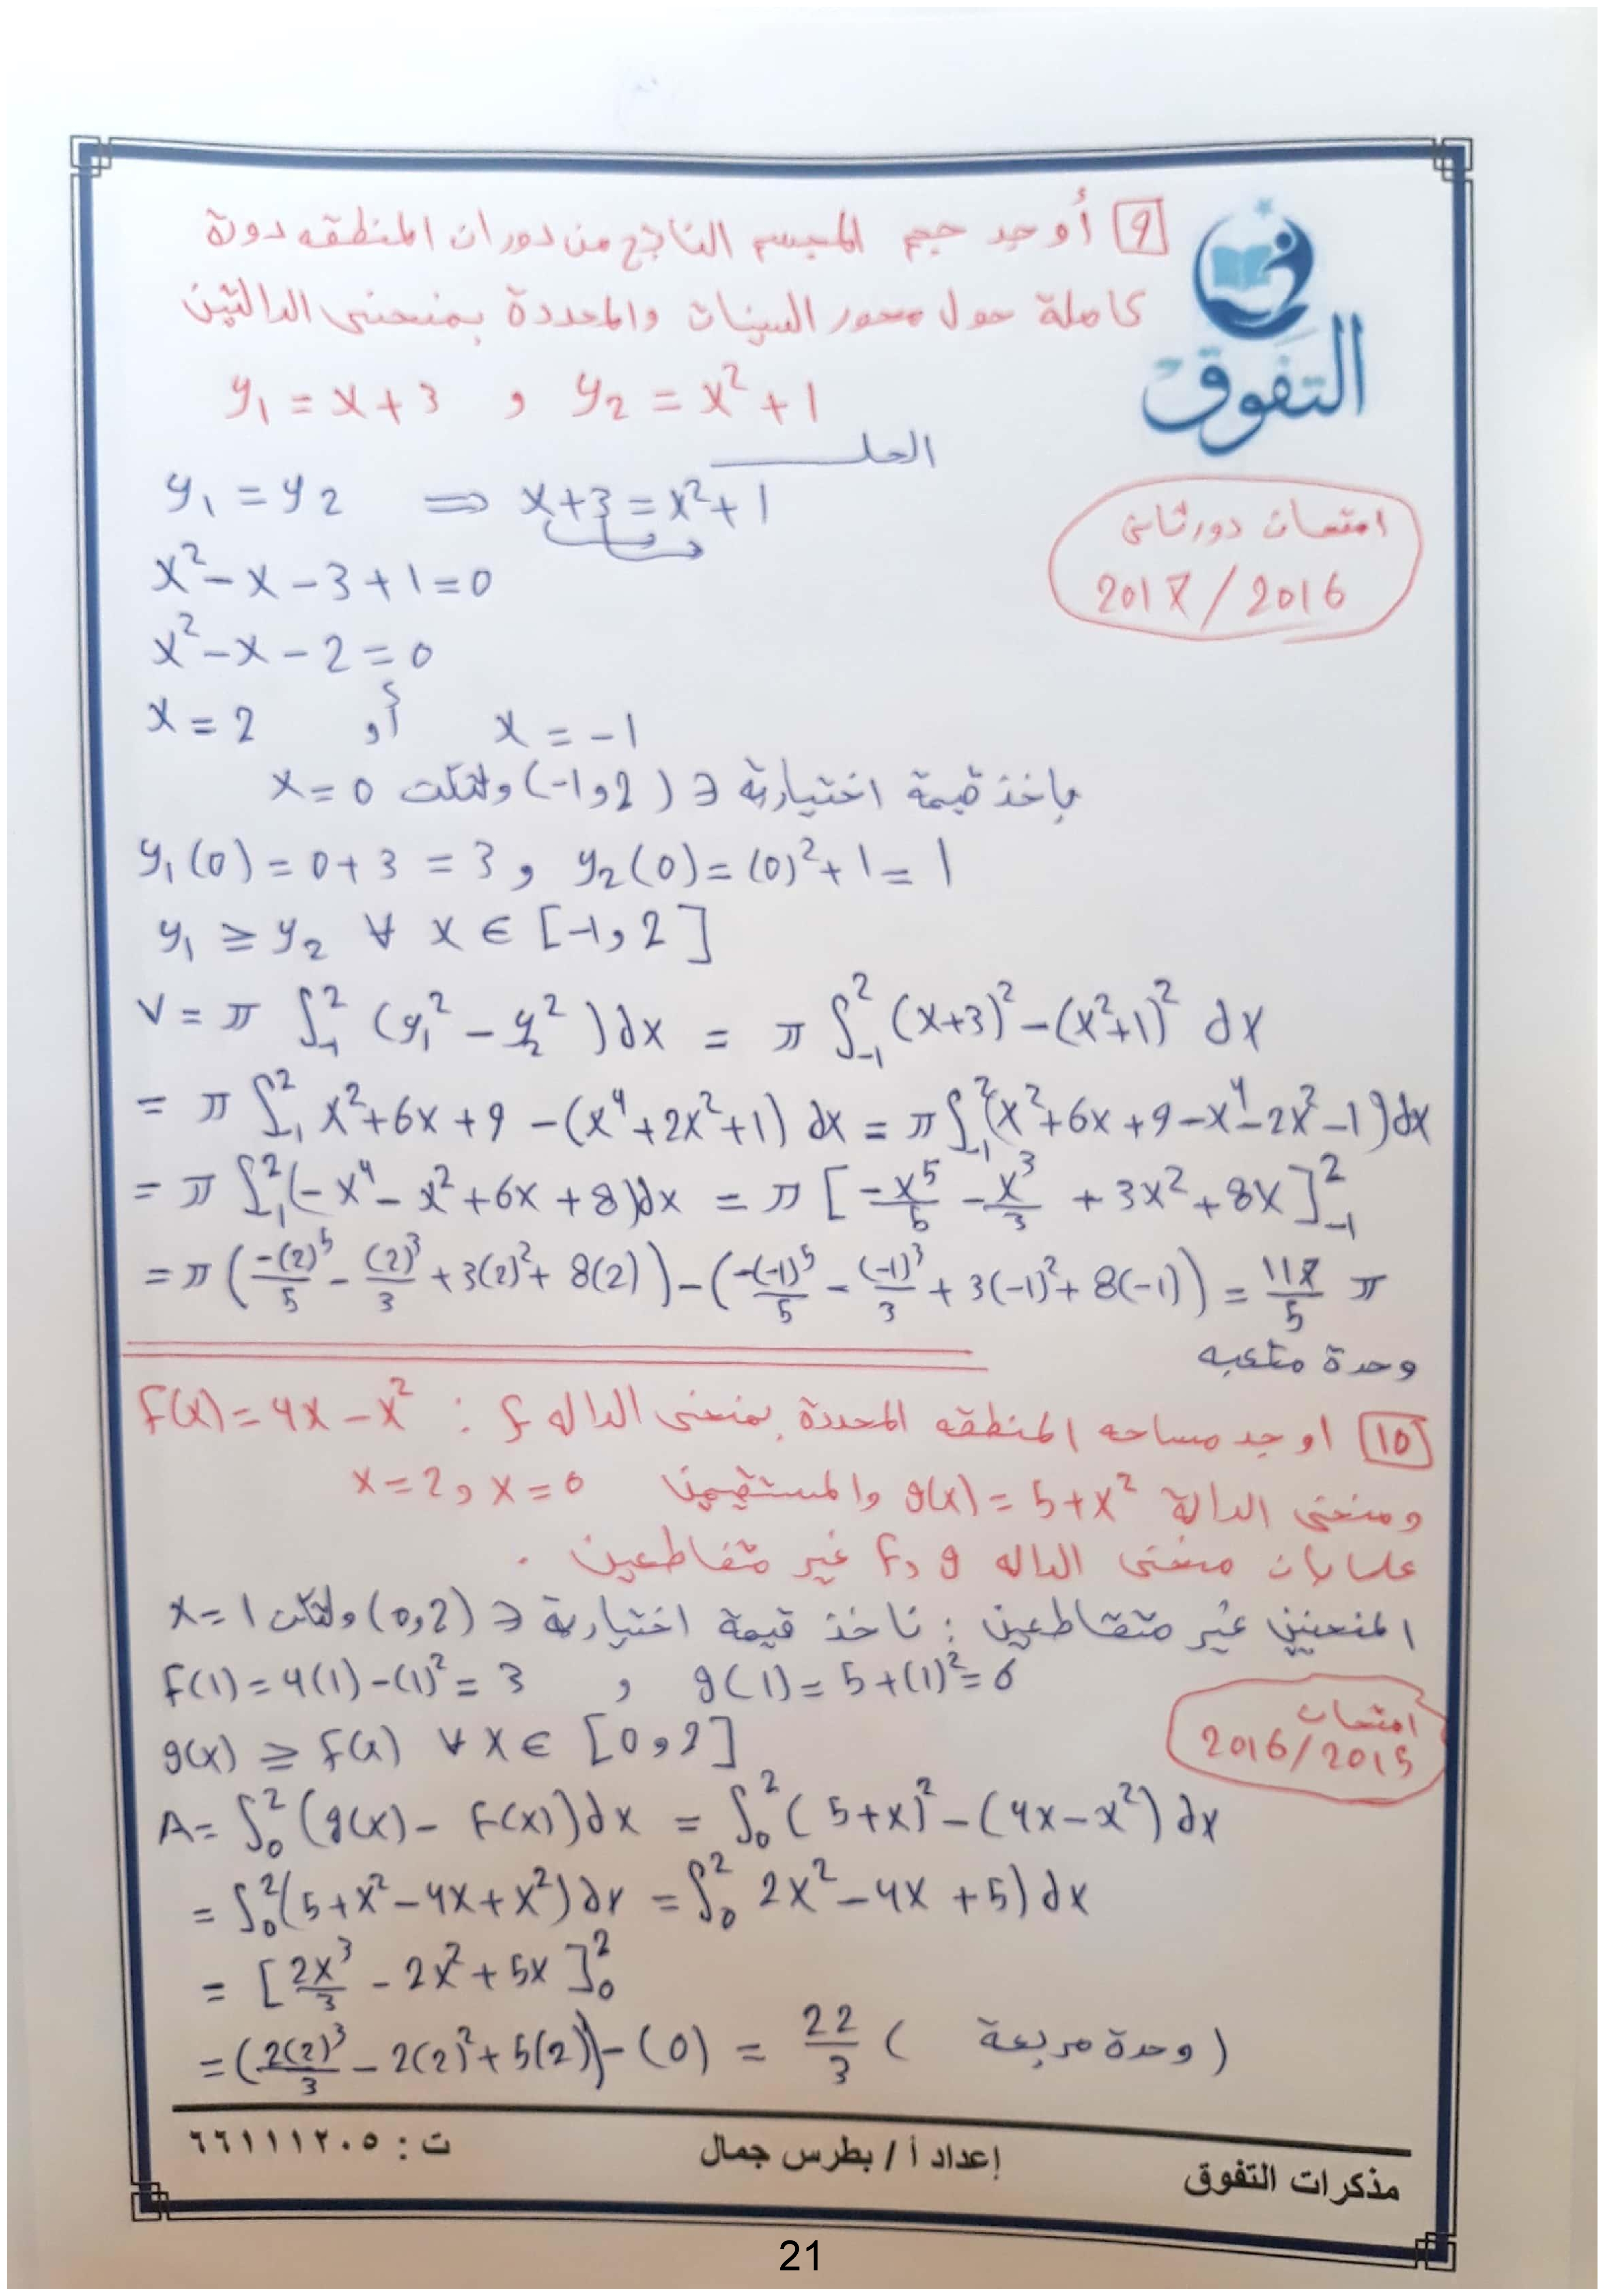 9 أوجد حجم المجسم الناتج من دوران المنطقه دورة
كاملة حول محور السينات والمحددة بمنحنى الدالتين
y₁ = x + 3 , y₂ = x² + 1
التفوق
الحل
y₁ = y₂ ⇒ x + 3 = x² + 1
امتحان دور ثاني
2017 / 2016
x² - x - 3 + 1 = 0
x² - x - 2 = 0
x = 2 أو x = -1
بأخذ قيمة اختيارية ∈ (-1 , 2) ولتكن x = 0
y₁(0) = 0 + 3 = 3 , y₂(0) = (0)² + 1 = 1
y₁ ≥ y₂ ∀ x ∈ [-1 , 2]
V = π ∫₋₁² (y₁² - y₂²) dx = π ∫₋₁² (x+3)² - (x²+1)² dx
= π ∫₋₁² x² + 6x + 9 - (x⁴ + 2x² + 1) dx = π ∫₋₁² (x² + 6x + 9 - x⁴ - 2x² - 1) dx
= π ∫₋₁² (-x⁴ - x² + 6x + 8) dx = π [-x⁵/5 - x³/3 + 3x² + 8x]₋₁²
= π (-(2)⁵/5 - (2)³/3 + 3(2)² + 8(2)) - (-(-1)⁵/5 - (-1)³/3 + 3(-1)² + 8(-1)) = 117/5 π
وحدة مكعبه
10 اوجد مساحه المنطقه المحددة بمنحنى الداله f : f(x) = 4x - x²
ومنحنى الدالة g(x) = 5 + x² والمستقيمين x = 2 , x = 0
علما بان منحنى الداله g و f غير متقاطعين .
المنحنيين غير متقاطعين : ناخذ قيمة اختيارية ∈ (0,2) ولتكن x = 1
f(1) = 4(1) - (1)² = 3 , g(1) = 5 + (1)² = 6
امتحان
2016/2015
g(x) ≥ f(x) ∀ x ∈ [0 , 2]
A = ∫₀² (g(x) - f(x)) dx = ∫₀² (5 + x)² - (4x - x²) dx
= ∫₀² (5 + x² - 4x + x²) dx = ∫₀² 2x² - 4x + 5) dx
= [2x³/3 - 2x² + 5x]₀²
= (2(2)³/3 - 2(2)² + 5(2)) - (0) = 22/3 (وحدة مربعة)
مذكرات التفوق إعداد أ / بطرس جمال ت : ٦٦١١١٢٠٥
21